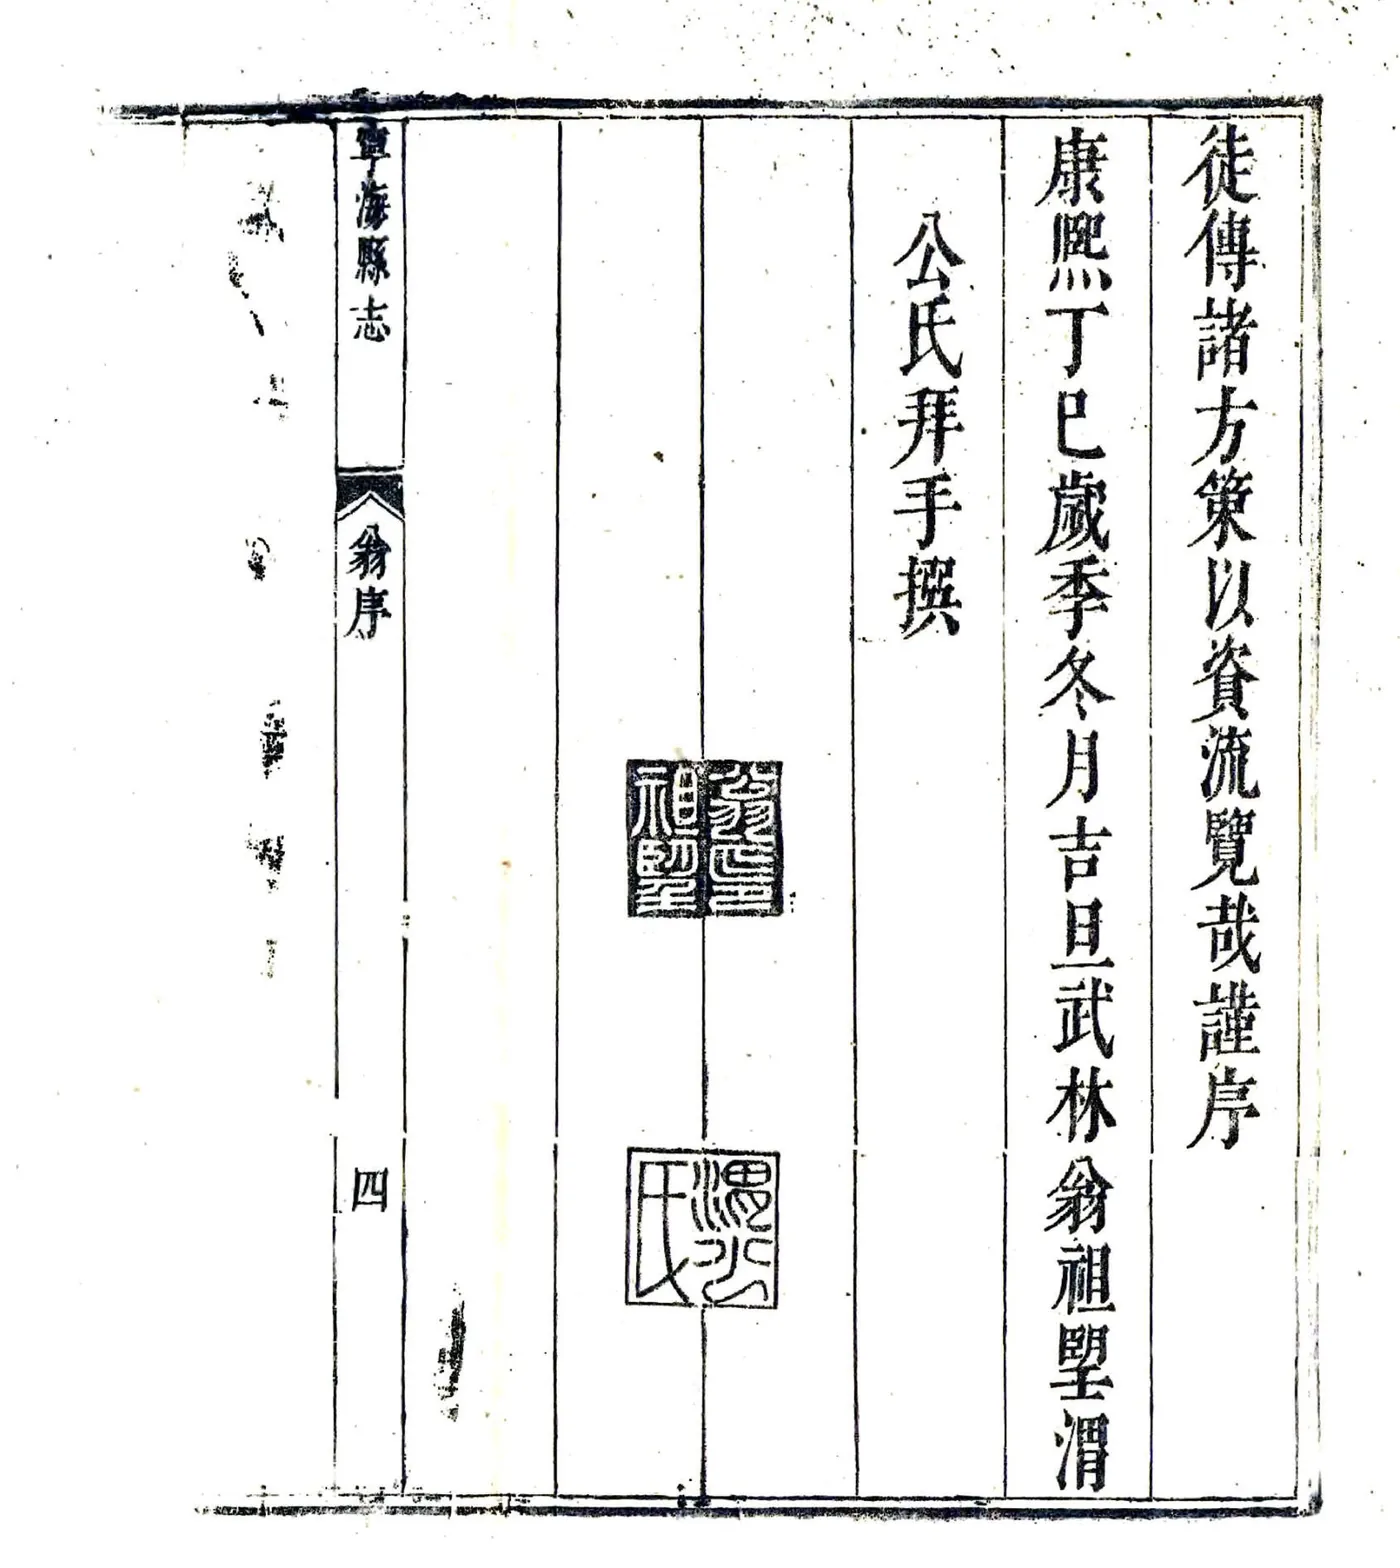 徒傳諸方策以資流覽哉謹序
康熙丁巳歲季冬月吉旦武林翁祖朢渭
公氏拜手撰
翁印
祖朢
渭公
氏
寧海縣志
翁序
四